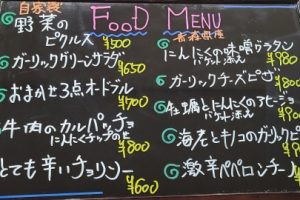 FOOD MENU
自家製
野菜の
ピクルス ¥500
ガーリックグリーンサラダ ¥650
おまかせ3点オードブル ¥700
牛肉のカルパッチョ
にんにくチップのせ ¥800
とても辛いチョリソー ¥600
青森県産
にんにくの味噌グラタン
バケット添え ¥980
ガーリックチーズピザ ¥800
牡蠣とにんにくのアヒージョ
バケット添え
海老とキノコのガーリック
激辛ペペロンチーノ